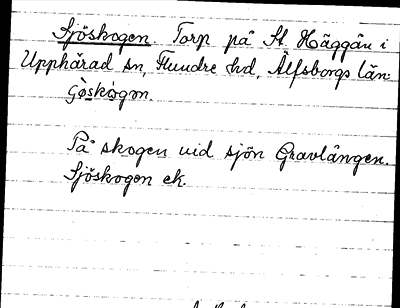 Sjöskogen. Torp på St. Häggån i
Upphärad sn, Flundre hd, Älfsborgs län.
Gòskògen.
På skogen vid sjön Gravlången.
Sjöskogen ek.